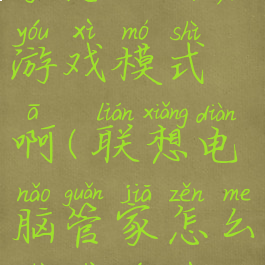 yóu xì mó shì
游戏模式
ā lián xiǎng diàn
啊(联想电
nǎo guǎn jiā zěn me
脑管家怎么